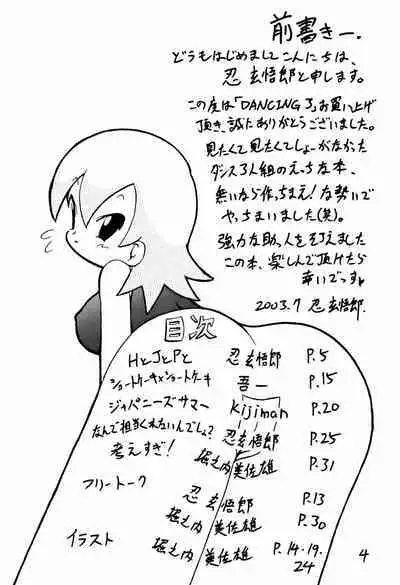 前書きー.
どうもはじめましてこんにちは、
忍 玄悟郎と申します。
この度は「DANCING 3」お買い上げ
頂き、誠にありがとうございました。
見たくて見たくてしょーがなかった
ダンス3人組のえっちな本、
無いなら作っちまえ!な勢いで
やっちまいました(笑)。
強力な助っ人をそえました
この本、楽しんで頂けたら
幸いでっす♥
2003.7 忍 玄悟郎.
目次
HとJとPと 忍 玄悟郎 P.5
ショートケーキ×ショートケーキ 吾一 P.15
ジャパニーズサマー Kijiman P.20
なんで担当くれないんでしょ? 忍 玄悟郎 P.25
考えすぎ! 堀之内 美佐雄 P.31
フリートーク 忍 玄悟郎 P.13
堀之内 美佐雄 P.30
イラスト 堀之内 美佐雄 P.14・19.
24
4